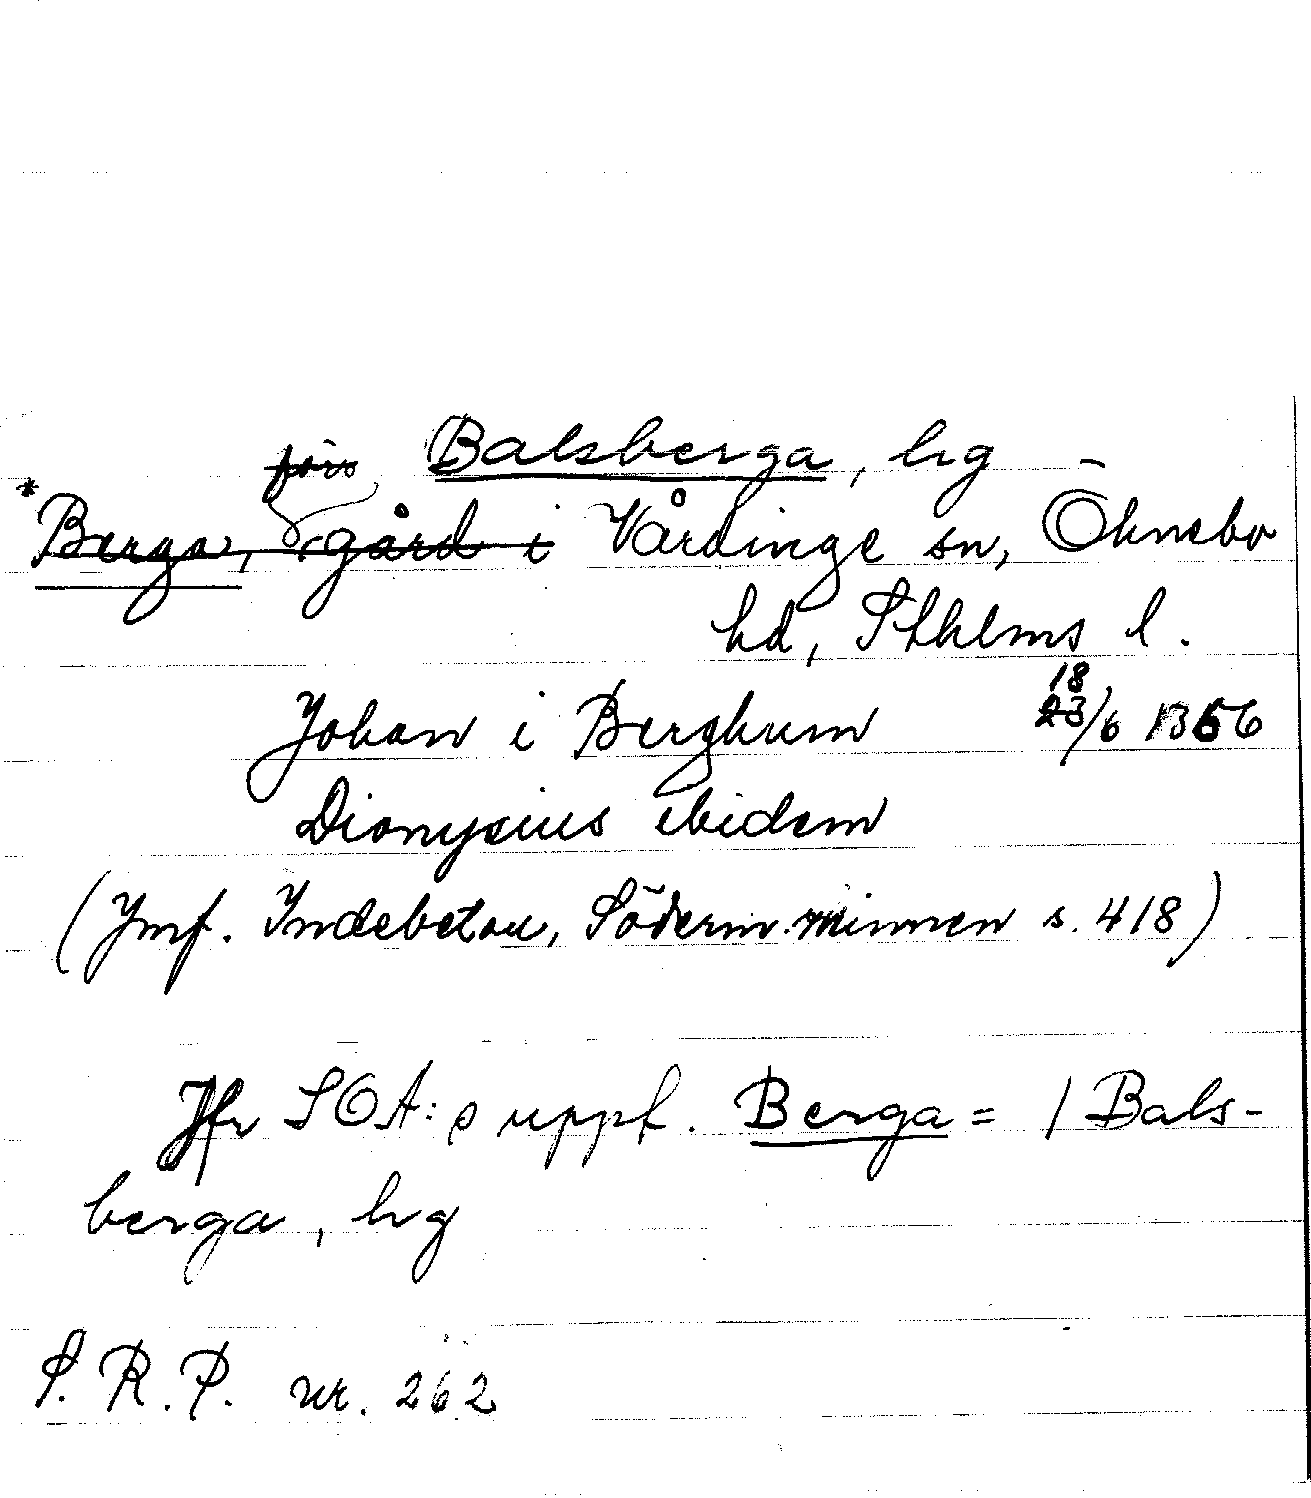 förs Balsberga, hg –
*Berga, gård i Vårdinge sn, Öknebo
hd, Sthlms l.
Johan i Berghum 18 23/6 1356
Dionysius ibidem
(Jmf. Indebetou, Söderm. minnen s. 418)
Jfr SOA:s uppf. Berga = / Bals-
berga, hg
S. R. P. nr. 262